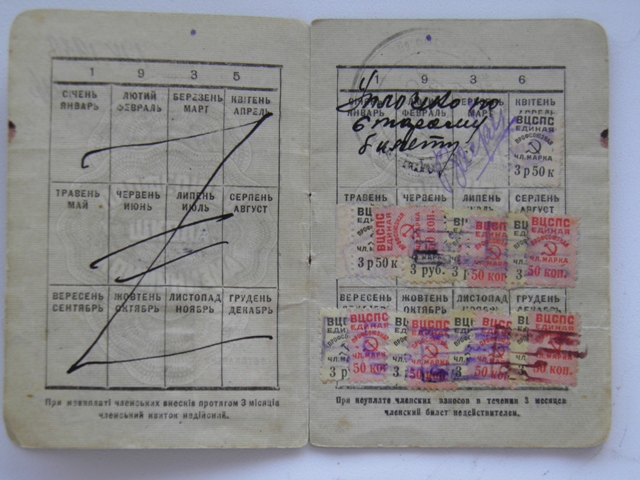 1 9 3 5
СІЧЕНЬ ЛЮТИЙ БЕРЕЗЕНЬ КВІТЕНЬ
ЯНВАРЬ ФЕВРАЛЬ МАРТ АПРЕЛЬ
ТРАВЕНЬ ЧЕРВЕНЬ ЛИПЕНЬ СЕРПЕНЬ
МАЙ ИЮНЬ ИЮЛЬ АВГУСТ
ВЕРЕСЕНЬ ЖОВТЕНЬ ЛИСТОПАД ГРУДЕНЬ
СЕНТЯБРЬ ОКТЯБРЬ НОЯБРЬ ДЕКАБРЬ
При невплаті членських внесків протягом 3 місяців
членський квиток недійсний.
9 3 6
КВІТЕНЬ
Уплочено по
старому
билету
ВЦСПС
ЕДИНАЯ
ПРОФСОЮЗНАЯ
ЧЛ. МАРКА
3 р 50 к
ТРАВЕНЬ ЧЕРВЕНЬ ЛИПЕНЬ СЕРПЕНЬ
МАЙ ИЮНЬ ИЮЛЬ АВГУСТ
ВЦСПС
ЕДИНАЯ
3 р 50 к 50 коп. 3 руб. 50 коп. 50 коп.
ВЕРЕСЕНЬ ЖОВТЕНЬ ЛИСТОПАД ГРУДЕНЬ
ВЦСПС ВЦСПС ВЦСПС ВЦСПС
ЕДИНАЯ ЕДИНАЯ ЕДИНАЯ ЕДИНАЯ
ЧЛ. МАРКА
50 коп. 50 коп. 50 коп. 50 коп.
При неуплате членских взносов в течении 3 месяцев
членский билет недействителен.